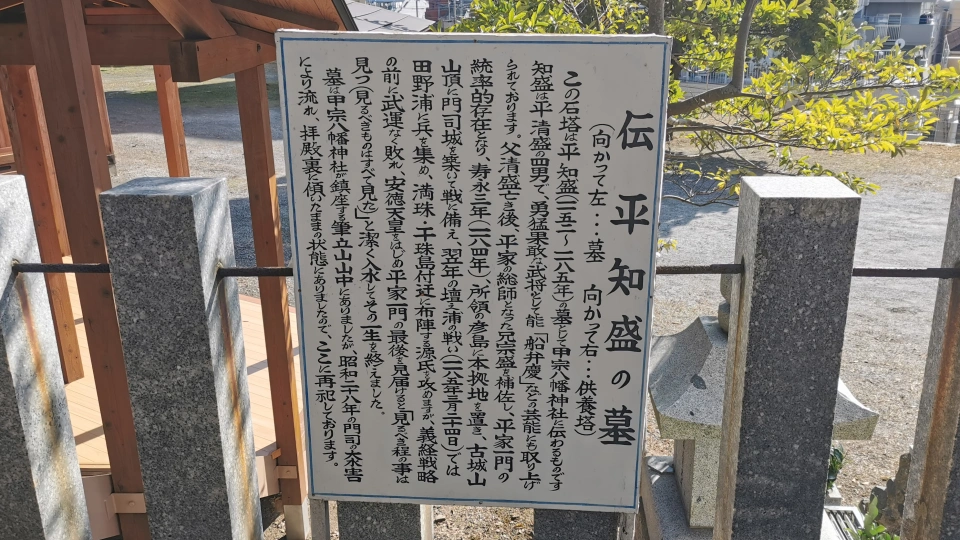 伝 平 知 盛 の 墓
(向かって左・・・墓　向かって右・・・供養塔)
この石塔は平 知盛(一一五二〜一一八五年)の墓として甲宗八幡神社に伝わるものです
知盛は平 清盛の四男で、勇猛果敢な武将として能「船弁慶」などの芸能にも取り上げ
られております。父清盛亡き後、平家の総師となった兄宗盛を補佐し、平家一門の
統率的存在となり、寿永三年(一一八四年)、所領の彦島に本拠地を置き、古城山
山頂に門司城を築いて戦に備え、翌年の壇ノ浦の戦い(一一八五年三月二十四日)では
田野浦に兵を集め、満珠・干珠島付近に布陣する源氏を攻めますが、義経戦略
の前に武運なく敗れ、安徳天皇をはじめ平家一門の最後を見届けると「見るべき程の事は
見つ(見るべきものはすべて見た)」と潔く入水してその一生を終えました。
墓は甲宗八幡神社が鎮座する筆立山山中にありましたが、昭和二十八年の門司の大水害
により流れ、拝殿裏に傾いたままの状態にありましたので、ここに再祀しております。